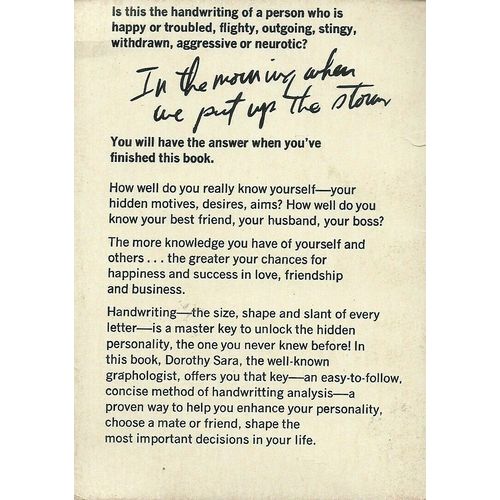 Is this the handwriting of a person who is
happy or troubled, flighty, outgoing, stingy,
withdrawn, aggressive or neurotic?
In the morning when
we put up the storm
You will have the answer when you've
finished this book.
How well do you really know yourself—your
hidden motives, desires, aims? How well do you
know your best friend, your husband, your boss?
The more knowledge you have of yourself and
others . . . the greater your chances for
happiness and success in love, friendship
and business.
Handwriting—the size, shape and slant of every
letter—is a master key to unlock the hidden
personality, the one you never knew before! In
this book, Dorothy Sara, the well-known
graphologist, offers you that key—an easy-to-follow,
concise method of handwritting analysis—a
proven way to help you enhance your personality,
choose a mate or friend, shape the
most important decisions in your life.